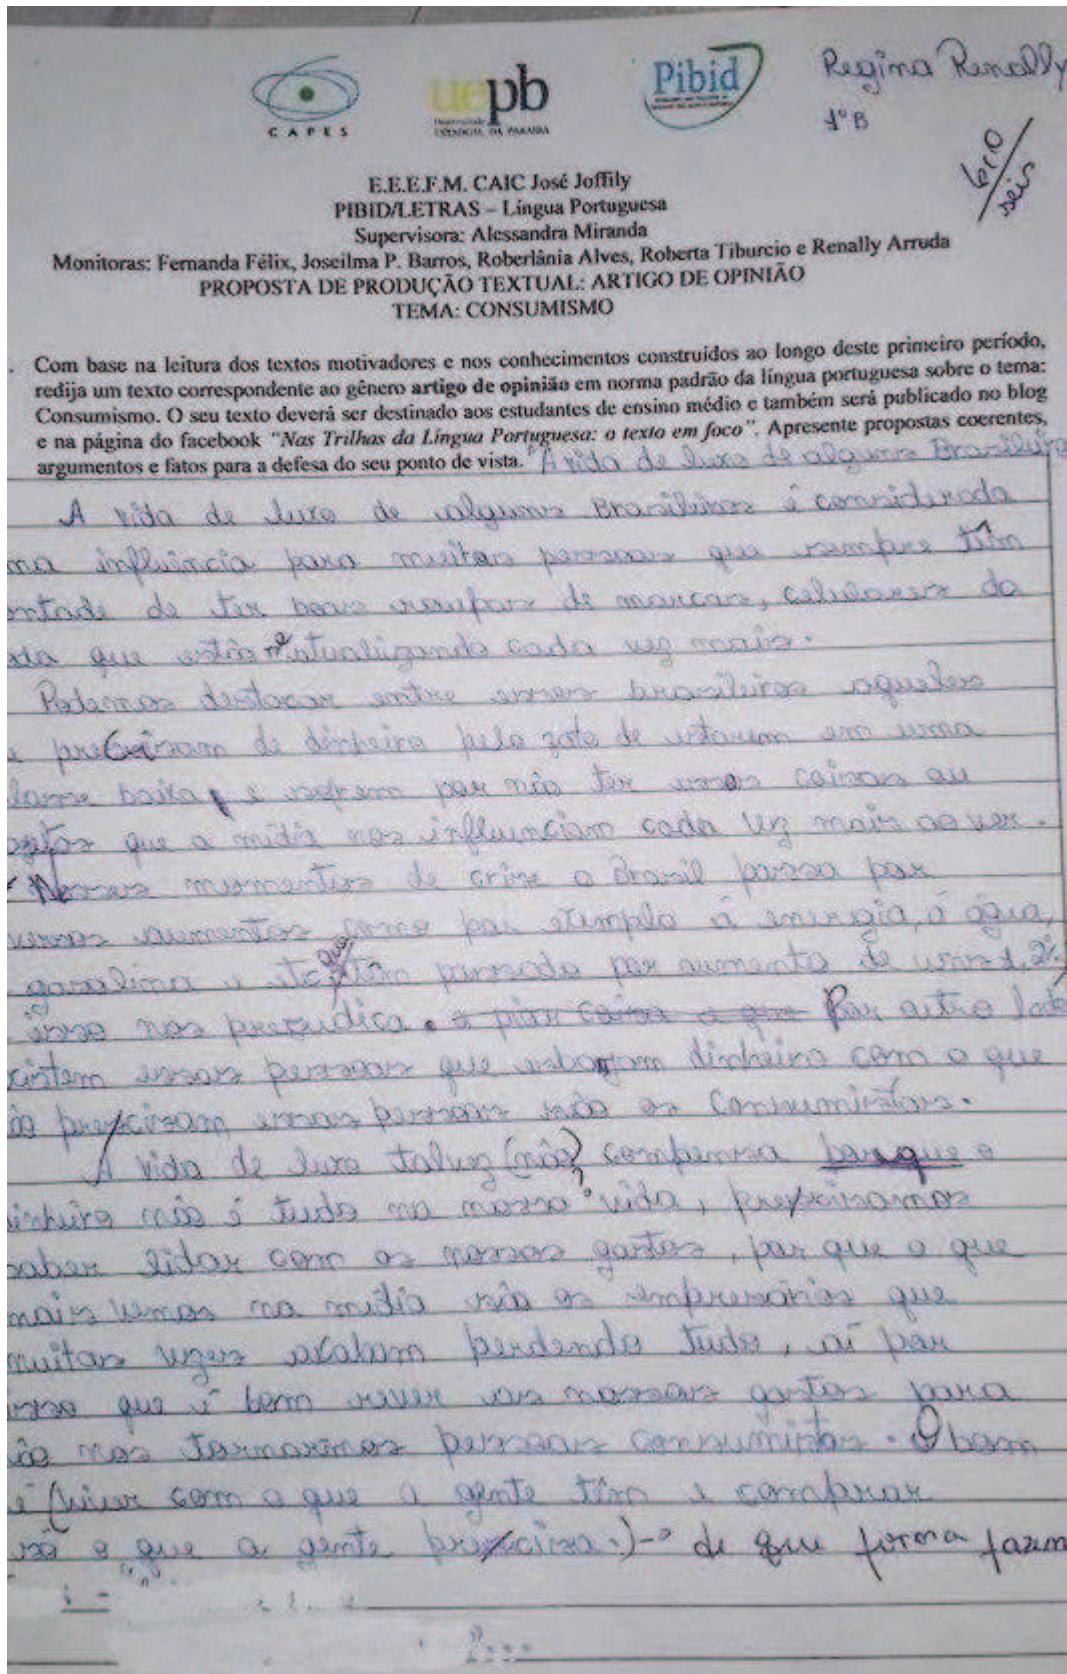 CAPES
uepb
Universidade
ESTADUAL DA PARAÍBA
Pibid
Regina Renally
1º B
6,0
seis
E.E.E.F.M. CAIC José Joffily
PIBID/LETRAS – Língua Portuguesa
Supervisora: Alessandra Miranda
Monitoras: Fernanda Félix, Joseilma P. Barros, Roberlânia Alves, Roberta Tiburcio e Renally Arruda
PROPOSTA DE PRODUÇÃO TEXTUAL: ARTIGO DE OPINIÃO
TEMA: CONSUMISMO
Com base na leitura dos textos motivadores e nos conhecimentos construídos ao longo deste primeiro período,
redija um texto correspondente ao gênero artigo de opinião em norma padrão da língua portuguesa sobre o tema:
Consumismo. O seu texto deverá ser destinado aos estudantes de ensino médio e também será publicado no blog
e na página do facebook "Nas Trilhas da Língua Portuguesa: o texto em foco". Apresente propostas coerentes,
argumentos e fatos para a defesa do seu ponto de vista. "A vida de luxo de alguns Brasileiros
A vida de luxo de alguns Brasileiros é considerada
ma influência para muitas pessoas que sempre têm
ontade de ter boas roupas de marcas, celulares da
da que estão atualizando cada vez mais.
Podemos destacar entre esses brasileiros aqueles
precisam de dinheiro pelo fato de estarem em uma
lasse baixa, e sofrem por não ter essas coisas ou
que a mídia nos influenciam cada vez mais ao ver.
Nesses momentos de crise o Brasil passa por
aumentos como por exemplo á energia, á água,
gasolina e tem passado por aumento de uns
isso nos prejudica. a pior coisa o que Por outro lado
xistem essas pessoas que esbanjam dinheiro com o que
ão precisam essas pessoas são os Consumistas.
A vida de luxo talvez (não) compensa porque o
inheiro não é tudo na nossa vida, precisamos
saber lidar com os nossos gastos, por que o que
mais vemos na mídia são os empresários que
muitas vezes acabam perdendo tudo, aí por
isso que é bom rever os nossos gastos para
ão nos tornarmos pessoas consumistas. O bom
é (viver com o que a gente têm e comprar
só o que a gente precisa.) -> de que forma fazem